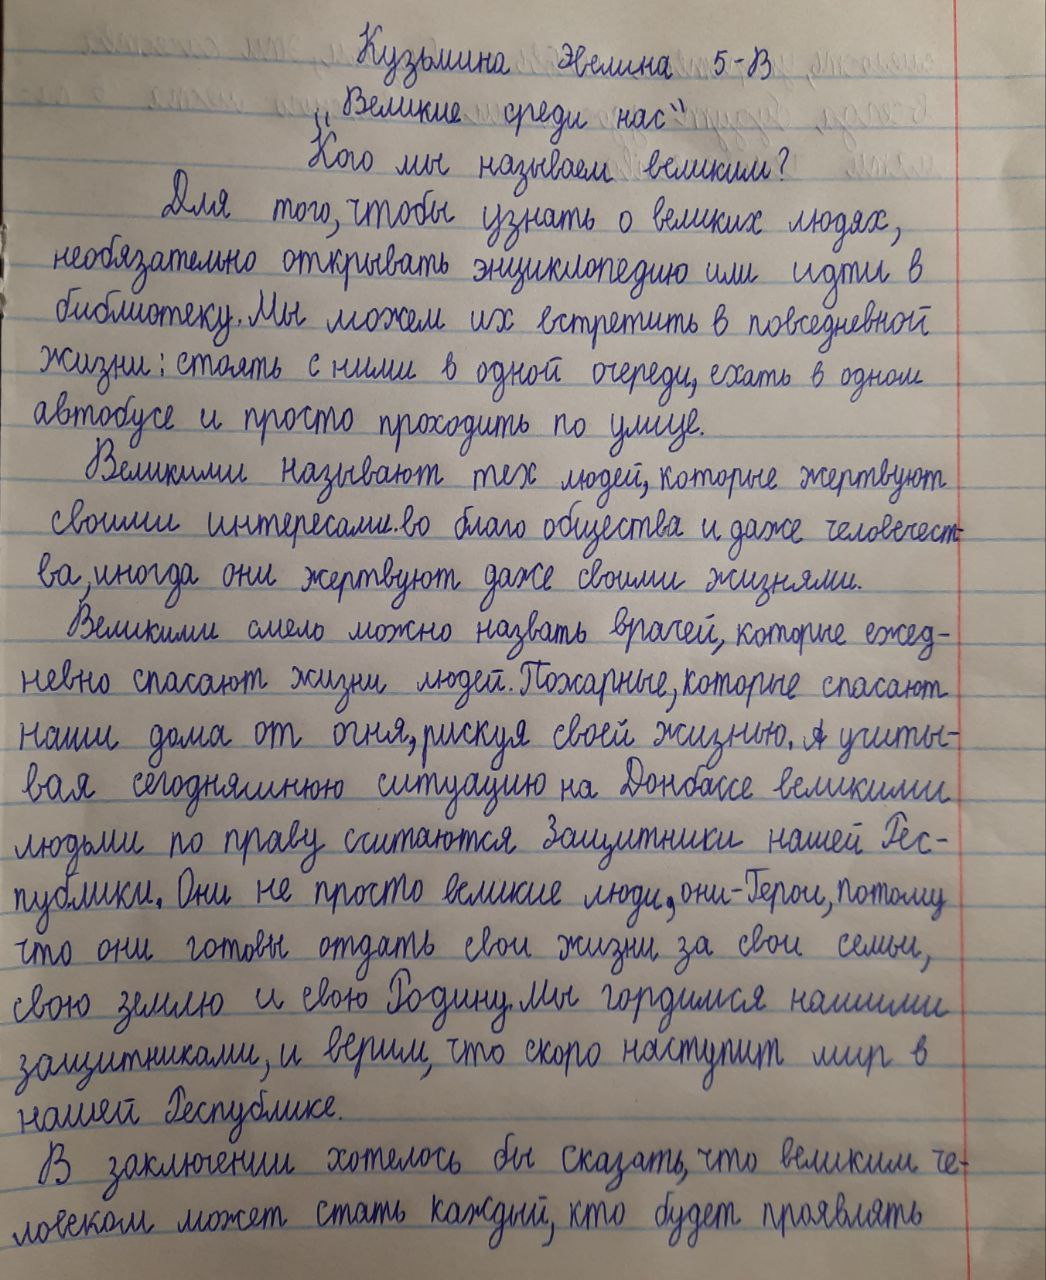 Кузьмина Эвелина 5-В
„Великие среди нас"
Кого мы называем великим?
Для того, чтобы узнать о великих людях,
необязательно открывать энциклопедию или идти в
библиотеку. Мы можем их встретить в повседневной
жизни: стоять с ними в одной очереди, ехать в одном
автобусе и просто проходить по улице.
Великими называют тех людей, которые жертвуют
своими интересами во благо общества и даже человечест-
ва, иногда они жертвуют даже своими жизнями.
Великими смело можно назвать врачей, которые ежед-
невно спасают жизни людей. Пожарные, которые спасают
наши дома от огня, рискуя своей жизнью. А учиты-
вая сегодняшнюю ситуацию на Донбассе великими
людьми по праву считаются Защитники нашей Рес-
публики. Они не просто великие люди, они-Герои, потому
что они готовы отдать свои жизни за свои семьи,
свою землю и свою Родину. Мы гордимся нашими
защитниками, и верим, что скоро наступит мир в
нашей Республике.
В заключении хотелось бы сказать, что великим че-
ловеком может стать каждый, кто будет проявлять